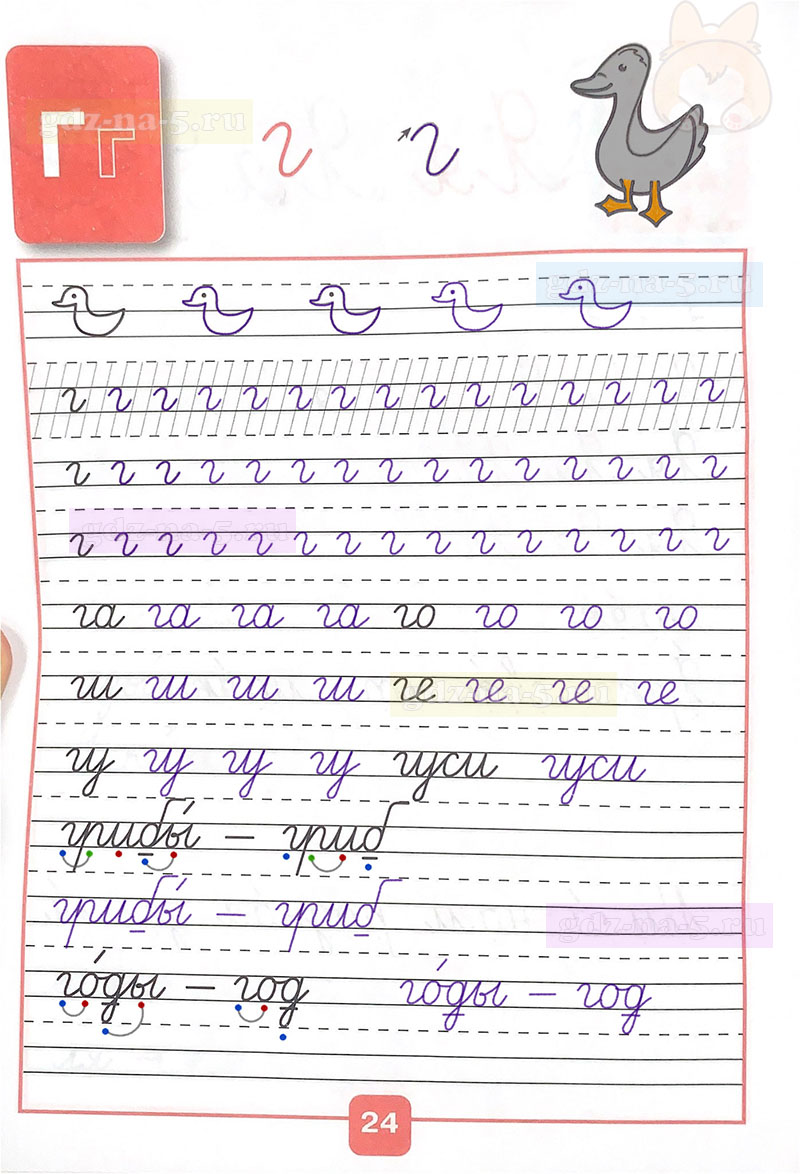 Гг г г
gdz-na-5.ru
gdz-na-5.ru
г г г г г г г г г г г г г г г
г г г г г г г г г г г г г г г
gdz-na-5.ru
г г г г г г г г г г г г г г г
га га га га го го го го
ги ги ги ги ге ге ге ге
gdz-na-5.ru
гу гу гу гу гуси гуси
грибы́ – гриб
грибы́ – гриб
gdz-na-5.ru
го́ды – год го́ды – год
24